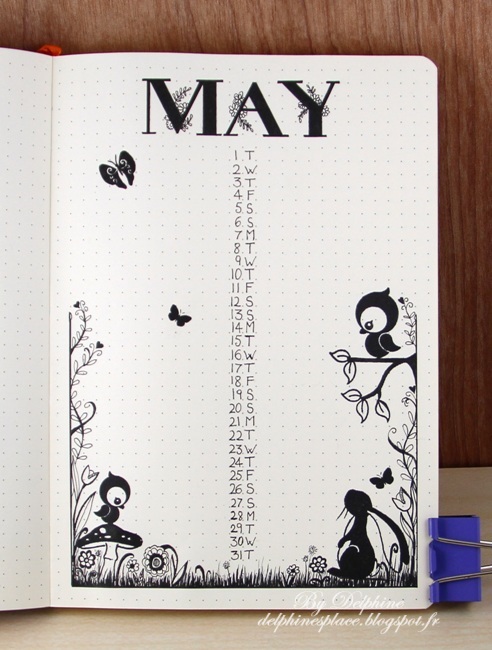 MAY
1. T.
2. W.
3. T.
4. F.
5. S.
6. S.
7. M.
8. T.
9. W.
10. T.
11. F.
12. S.
13. S.
14. M.
15. T.
16. W.
17. T.
18. F.
19. S.
20. S.
21. M.
22. T.
23. W.
24. T.
25. F.
26. S.
27. S.
28. M.
29. T.
30. W.
31. T.
By Delphine
delphinesplace.blogspot.fr